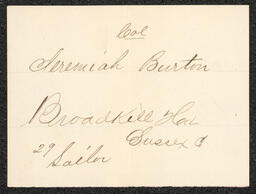 Col
Jeremiah Burton
Broadkill Hun
Sussex C
29
Sailor